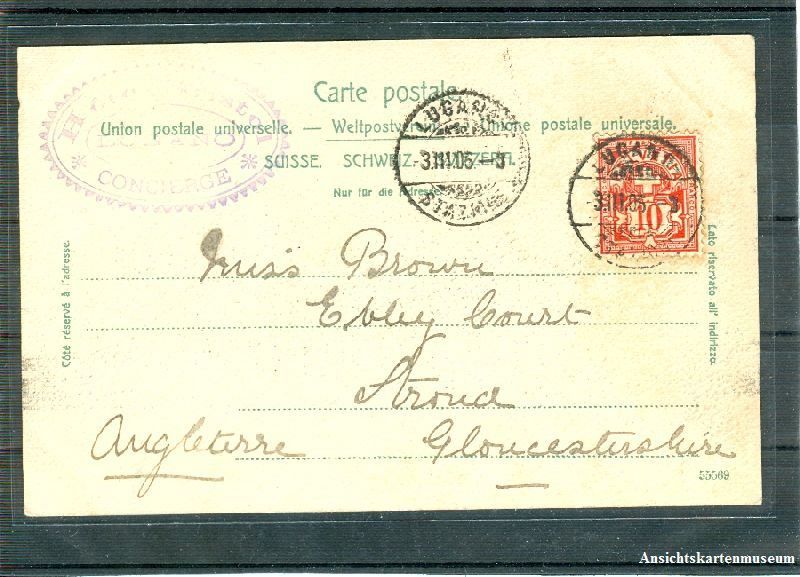 Carte postale.
Union postale universelle. — Weltpostverein. — Unione postale universale.
SUISSE. SCHWEIZ.
Nur für die Adresse.
LUGANO
CONCIERGE
LUGANO
3.III.05.
LUGANO
3.III.05
10
Côté réservé à l'adresse.
Lato riservato all' indirizzo.
Miss Brown
Ebley Court
Stroud
Angleterre Gloucestershire
55569
Ansichtskartenmuseum